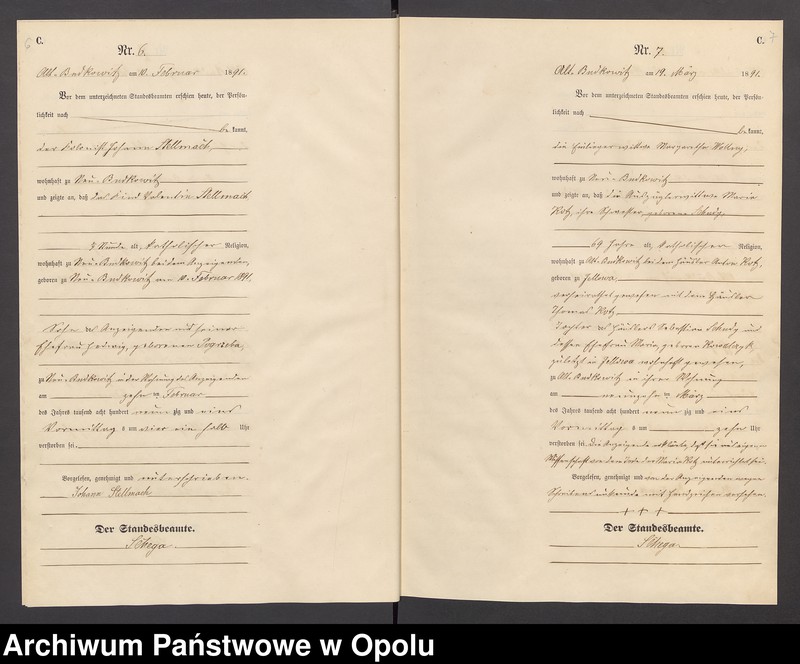 6
C.
Nr. 6.
Alt-Budkowitz am 10. Februar 1891.
Vor dem unterzeichneten Standesbeamten erschien heute, der Persön-
lichkeit nach
be kannt,
der Kolonist Johann Stellmach,
wohnhaft zu Neu-Budkowitz
und zeigte an, daß das Kind Valentin Stellmach
½ Stunde alt, katholischer Religion,
wohnhaft zu Neu-Budkowitz bei dem Anzeigenden,
geboren zu Neu-Budkowitz am 10. Februar 1891,
Sohn des Anzeigenden und seiner
Ehefrau Hedwig, geborenen
zu Neu-Budkowitz in der Wohnung des Anzeigenden
am zehn ten Februar
des Jahres tausend acht hundert neun zig und eins
Vormittag s um vier ein halb Uhr
verstorben sei.
Vorgelesen, genehmigt und unterschrieben.
Johann Stellmach
Der Standesbeamte.
C. 7
Nr. 7.
Alt-Budkowitz am 19. März 1891.
Vor dem unterzeichneten Standesbeamten erschien heute, der Persön-
lichkeit nach
be kannt,
die Einliegerwittwe Margaretha
wohnhaft zu Neu-Budkowitz
und zeigte an, daß die Auszüglerwittwe Maria
Kotz, ihre Schwester, geborene
69 Jahre alt, katholischer Religion,
wohnhaft zu Alt-Budkowitz bei dem Häusler Anton Kotz,
geboren zu Jellowa
verheirathet gewesen mit dem Häusler
Thomas Kotz
Tochter des Häuslers Sebastian und
dessen Ehefrau Maria, geboren
zuletzt in Jellowa wohnhaft gewesen,
zu Alt-Budkowitz in ihrer Wohnung
am neunzehn ten März
des Jahres tausend acht hundert neun zig und eins
Vormittag s um zehn Uhr
verstorben sei. Die Anzeigende erklärte, daß sie aus eigener
Wissenschaft von dem Tode der Maria Kotz unterrichtet sei.
Vorgelesen, genehmigt und von der Anzeigenden wegen
Schreibensunkunde mit Handzeichen versehen.
+ + +
Der Standesbeamte.
Archiwum Państwowe w Opolu